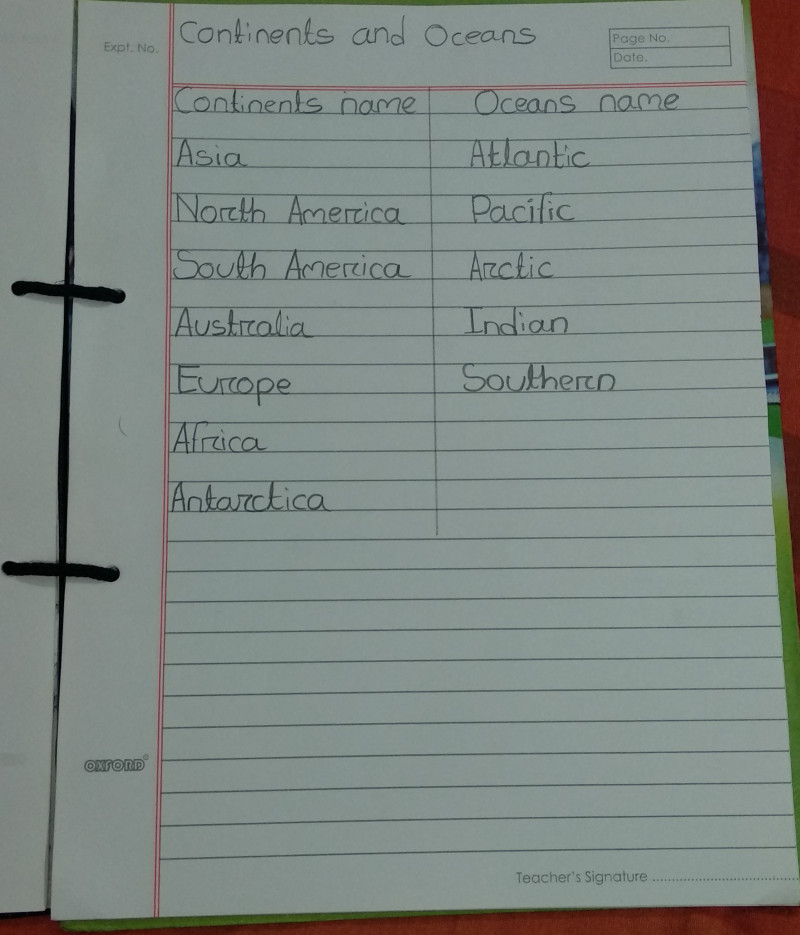 Continents and Oceans
Expt. No.
Page No.
Date.
Continents name Oceans name
Asia Atlantic
North America Pacific
South America Arctic
Australia Indian
Europe Southern
Africa
Antarctica
OXFORD
Teacher's Signature ..........................................